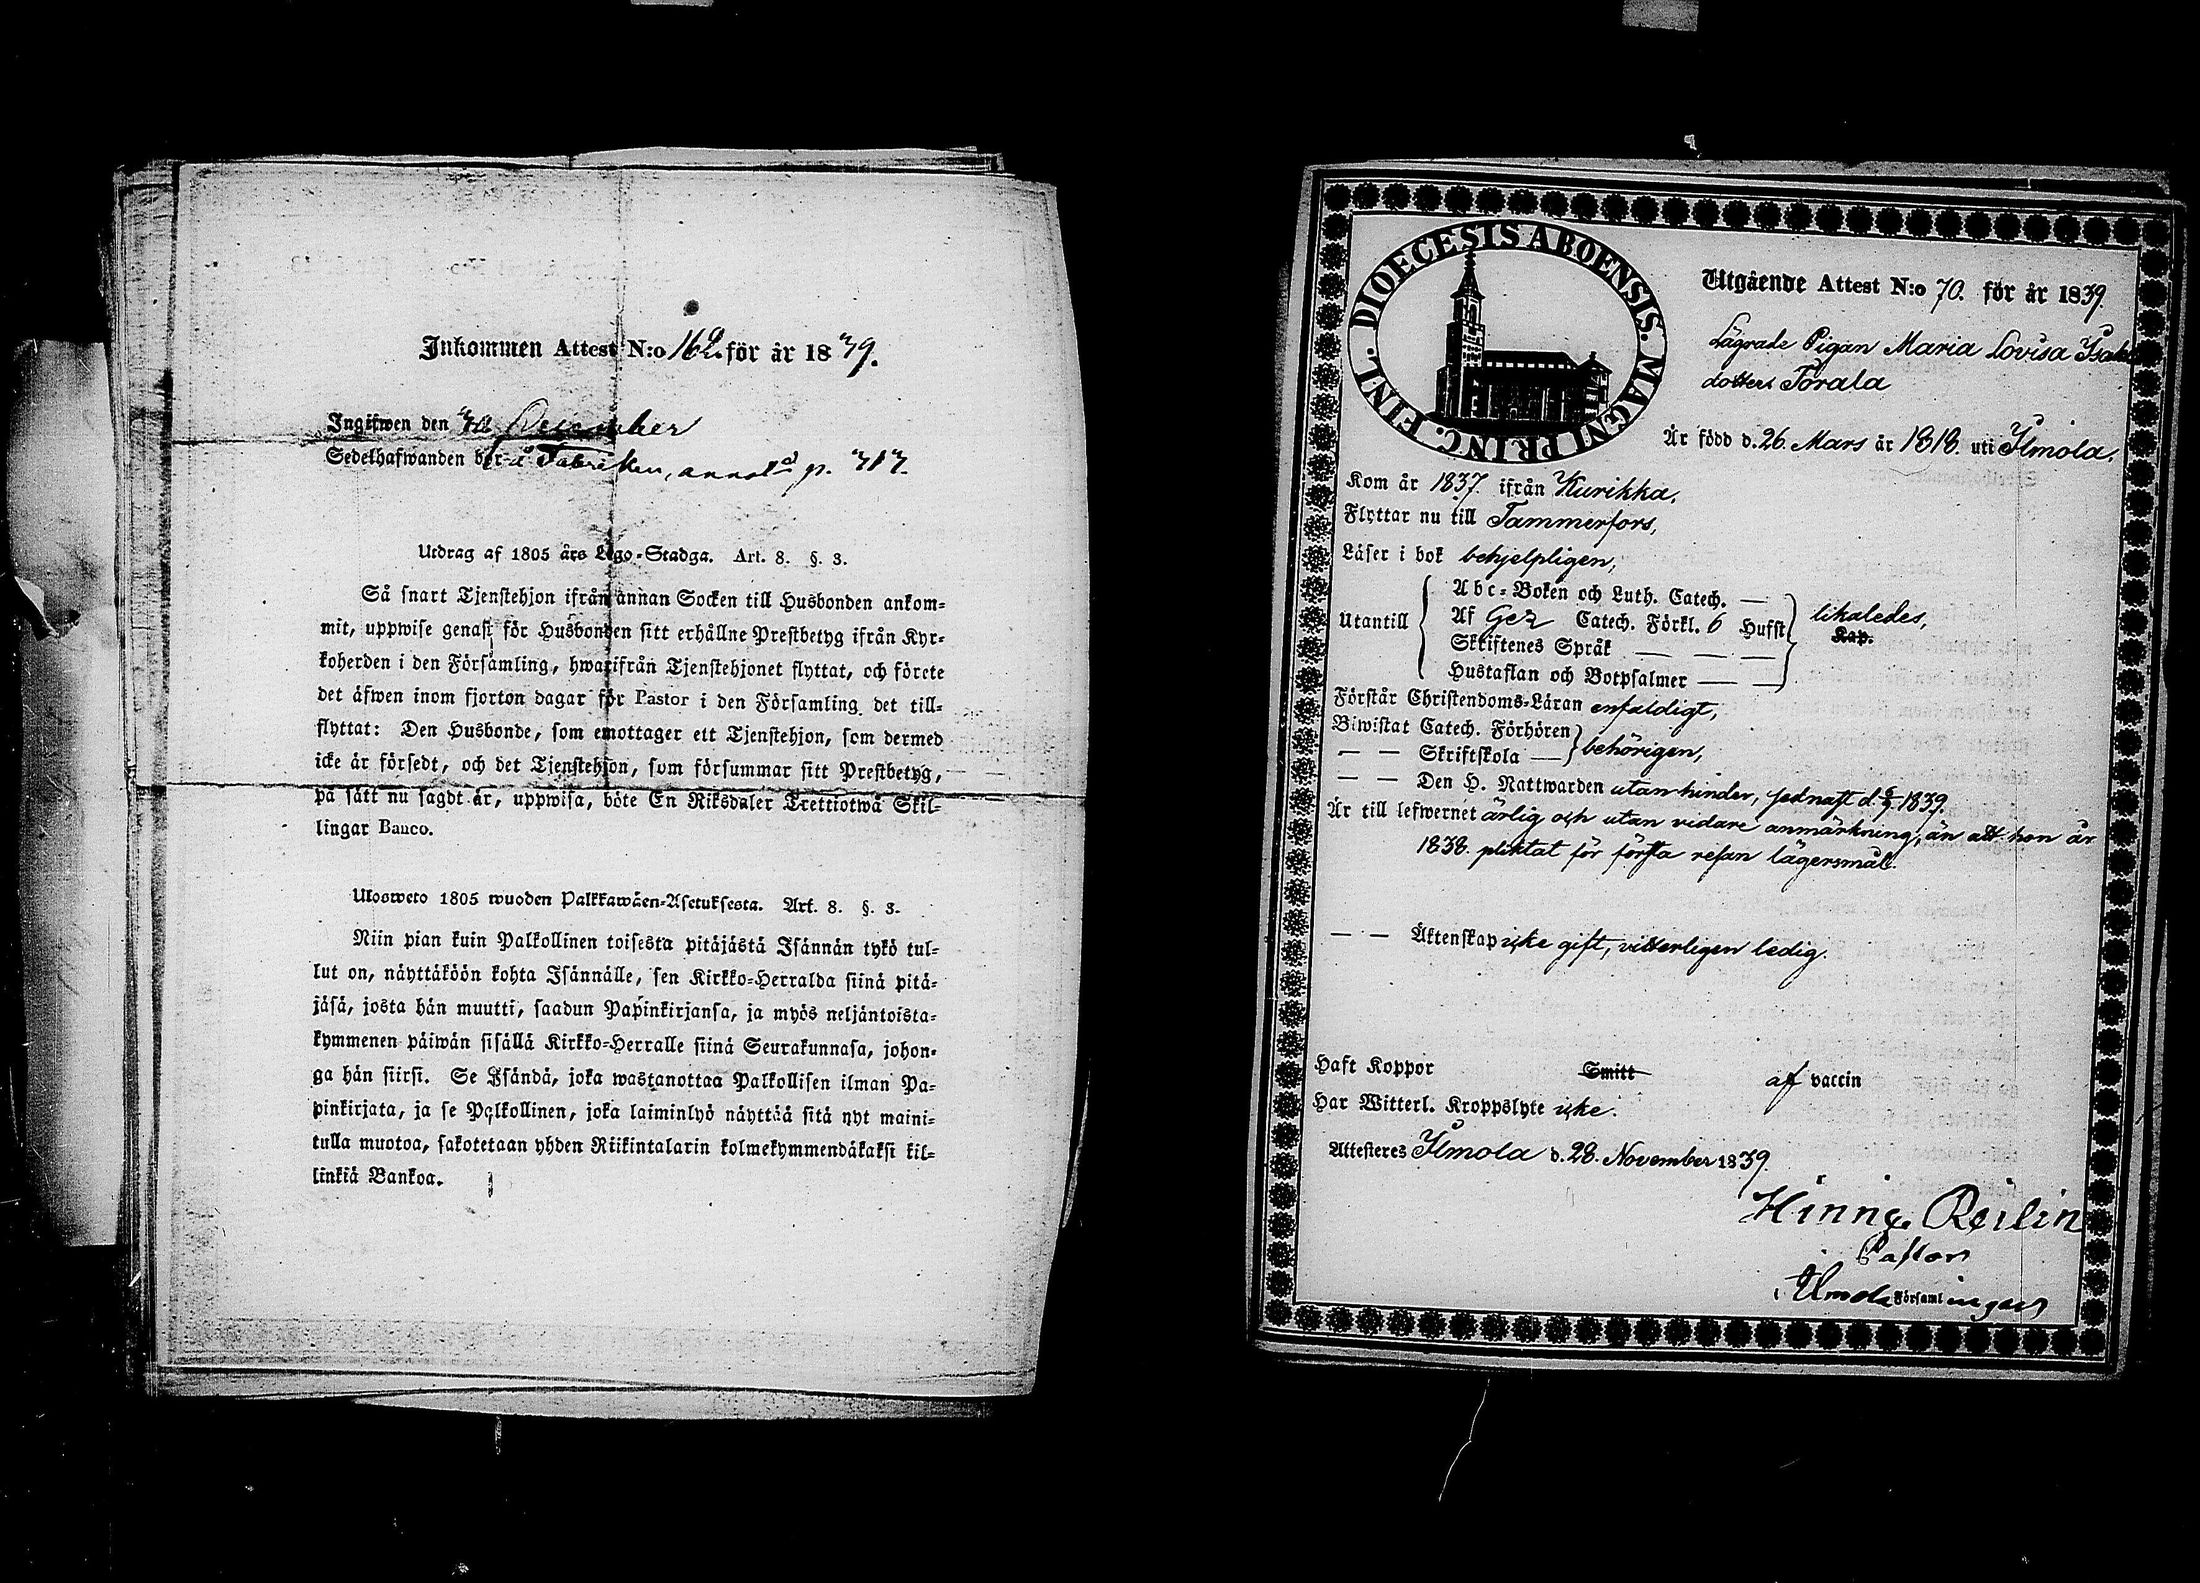 Inkommen Attest N:o 162. för år 1839.
Ingifwen den 30 December
Sedelhafwanden bor å Fabriken, annot. p. 313.
Utdrag af 1805 års Lego-Stadga. Art. 8. §. 3.
Så snart Tjenstehjon ifrån annan Socken till Husbonden ankom-
mit, uppwise genast för Husbonden sitt erhållne Prestbetyg ifrån Kyr-
koherden i den Församling, hwarifrån Tjenstehjonet flyttat, och förete
det äfwen inom fjorton dagar för Pastor i den Församling det till-
flyttat: Den Husbonde, som emottager ett Tjenstehjon, som dermed
icke är försedt, och det Tjenstehjon, som försummar sitt Prestbetyg,
på sätt nu sagdt är, uppwisa, böte En Riksdaler Trettiotwå Skil-
lingar Banco.
Ulosweto 1805 wuoden Palkkawäen-Asetuksesta. Art. 8. §. 3.
Niin pian kuin Palkollinen toisesta pitäjästä Isännän tykö tul-
lut on, näyttäköön kohta Isännälle, sen Kirkko-Herralda siinä pitä-
jäsä, josta hän muutti, saadun Papinkirjansa, ja myös neljäntoista-
kymmenen päiwän sisällä Kirkko-Herralle siinä Seurakunnasa, johon-
ga hän siirsi. Se Isändä, joka wastanottaa Palkollisen ilman Pa-
pinkirjata, ja se Palkollinen, joka laiminlyö näyttää sitä nyt maini-
tulla muotoa, sakotetaan yhden Riikintalarin kolmekymmendäkaksi kil-
linkiä Bankoa.
DIOECESIS ABOENSIS. MAGNI PRINC. FINL.
Utgående Attest N:o 70. för år 1839.
Lägrade Pigan Maria Lovisa Isaks
dotter Törala
Är född d. 26. Mars år 1818. uti Ilmola.
Kom år 1837. ifrån Kurikka,
Flyttar nu till Tammerfors,
Läser i bok behjelpligen,
Utantill
Abc-Boken och Luth. Catech. —
Af Gez Catech. Förkl. 6 Hufst
Skriftenes Språk — — —
Hustaflan och Botpsalmer — —
likaledes,
Kap.
Förstår Christendoms-Läran enfaldigt,
Biwistat Catech. Förhören
— — Skriftskola —
behörigen,
— — Den H. Nattwarden utan hinder, sednast d. 8/9 1839.
Är till lefwernet ärlig och utan vidare anmärkning, än att hon år
1838. pliktat för första resan lägersmål.
— — Äktenskap icke gift, vitterligen ledig.
Haft Koppor Smitt af vaccin
Har Witterl. Kroppslyte icke.
Attesteres Ilmola d. 28. November 1839.
Pastor
i Ilmola Församlingar